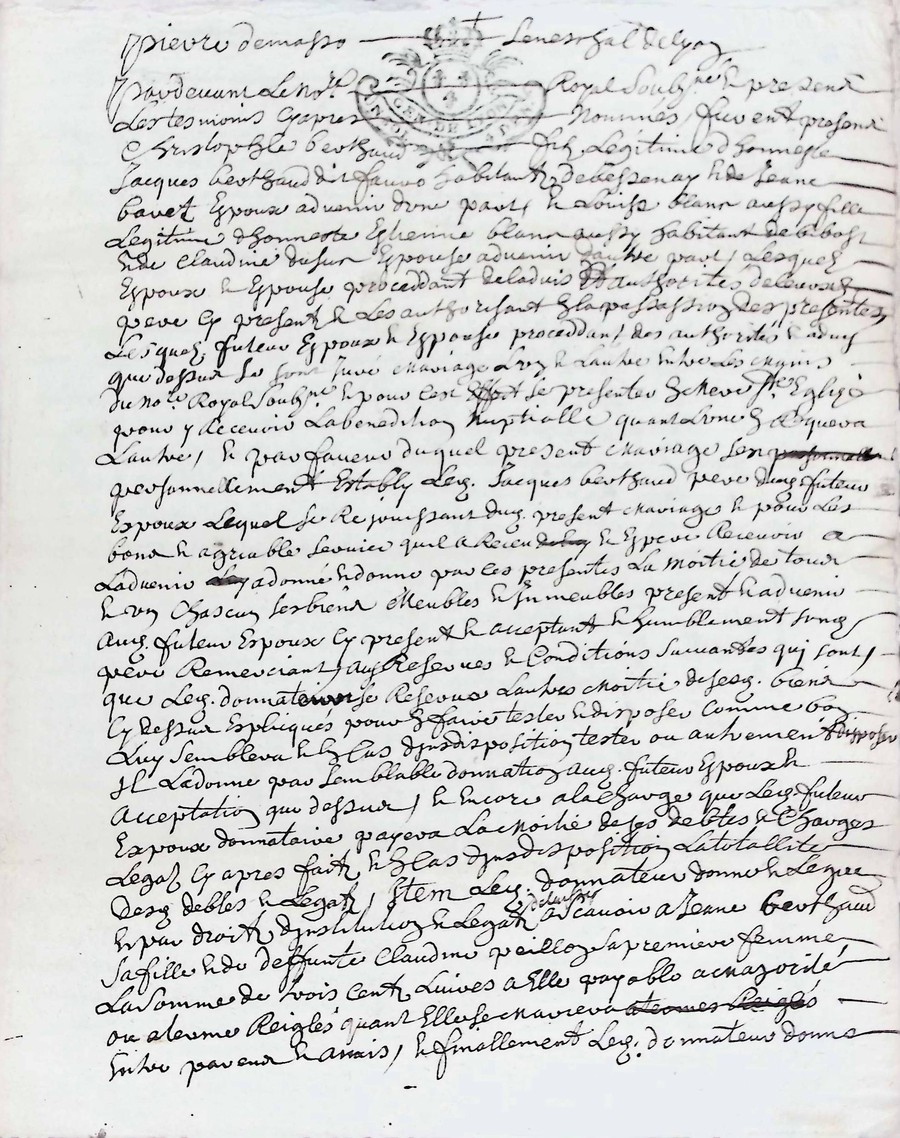 pierre demasso Seneschal de Lyon
Pardevant Le no.re Royal Soub.né & present
Les tesmoins cy apres Nommés, furent present
Christophle berthaud fils Legitime d honneste
Jacques berthaud dit fauro habitant de bessenay & de Jeane
bavet Espoux advenir d'une part, & Loüise blanc aussy fille
Legitime d honneste Estienne blanc aussy habitant de bibost
& de Claudine dusur Espouse advenir d'autre part, Lesquels
Espoux & Espouse proceddant de ladvis & authorités de leurs
pere cy present & Les authorisant a la passassion des presentes,
Lesquels futeur Espoux & Espouse proceddant des authorités & advis
que dessus se sont Juré mariage L'un & L'autre entre Les mains
du no.re Royal Soub.né & pour cest effect se presenter a n.re mere S.te Eglize
pour y Recevoir La benediction Nuptialle quant L'une & Requera
L'autre, & par faveur duquel present mariage s'en
personnellement Estably Led. Jacques berthaud pere dud. futeur
Espoux Lequel se Rejouissant dud. present mariage & pour Les
bons & agreable service quil a Receu & Espere Recevoir a
L'advenir a donné & donne par ces presentes La moitié de tous
& un chascun ses biens Meubles & Inmeubles present & advenir
aud. futeur Espoux cy present & acceptant & humblement sond.
pere Remerciant, aux Reserves & Conditions suivantes qui sont,
que Led. donnateur se Reserve L'autre moitié de sesd. biens
cy dessus Expliqués pour En faire tester & disposer comme bon
Luy semblera & En cas d'indisposition tester ou autrement disposer
Il L'a donne par semblable donnation aud. futeur Espoux &
acceptation que dessus, & Encore a la charge que Led. futeur
Espoux donnataire payera La moitié de ses debtes & Charges
Legatz cy apres faitz & En cas d'indisposition La totallité
desd. debtes & Legatz, Item Led. donnateur donne & Legue
& par droit d'institution & Legatz a scavoir a Jeane berthaud
sa fille & de deffunte Claudine peillon sa premiere femme
La somme de trois centz Livres a Elle payable a majorité
ou a terme Reiglés quant Elle se mariera
Entre parens & amis, & finallement Led. donnateur donne